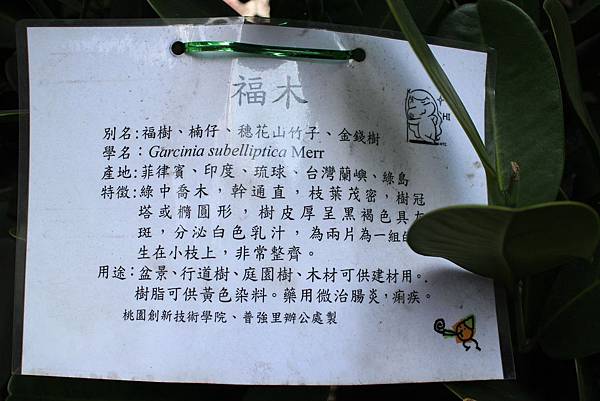 福木
別名：福樹、楠仔、穗花山竹子、金錢樹
學名：Garcinia subelliptica Merr
產地：菲律賓、印度、琉球、台灣蘭嶼、綠島
特徵：綠中喬木，幹通直，枝葉茂密，樹冠
塔或橢圓形，樹皮厚呈黑褐色具
斑，分泌白色乳汁，為兩片為一組
生在小枝上，非常整齊。
用途：盆景、行道樹、庭園樹、木材可供建材用。
樹脂可供黃色染料。藥用微治腸炎，痢疾。
桃園創新技術學院、普強里辦公處製